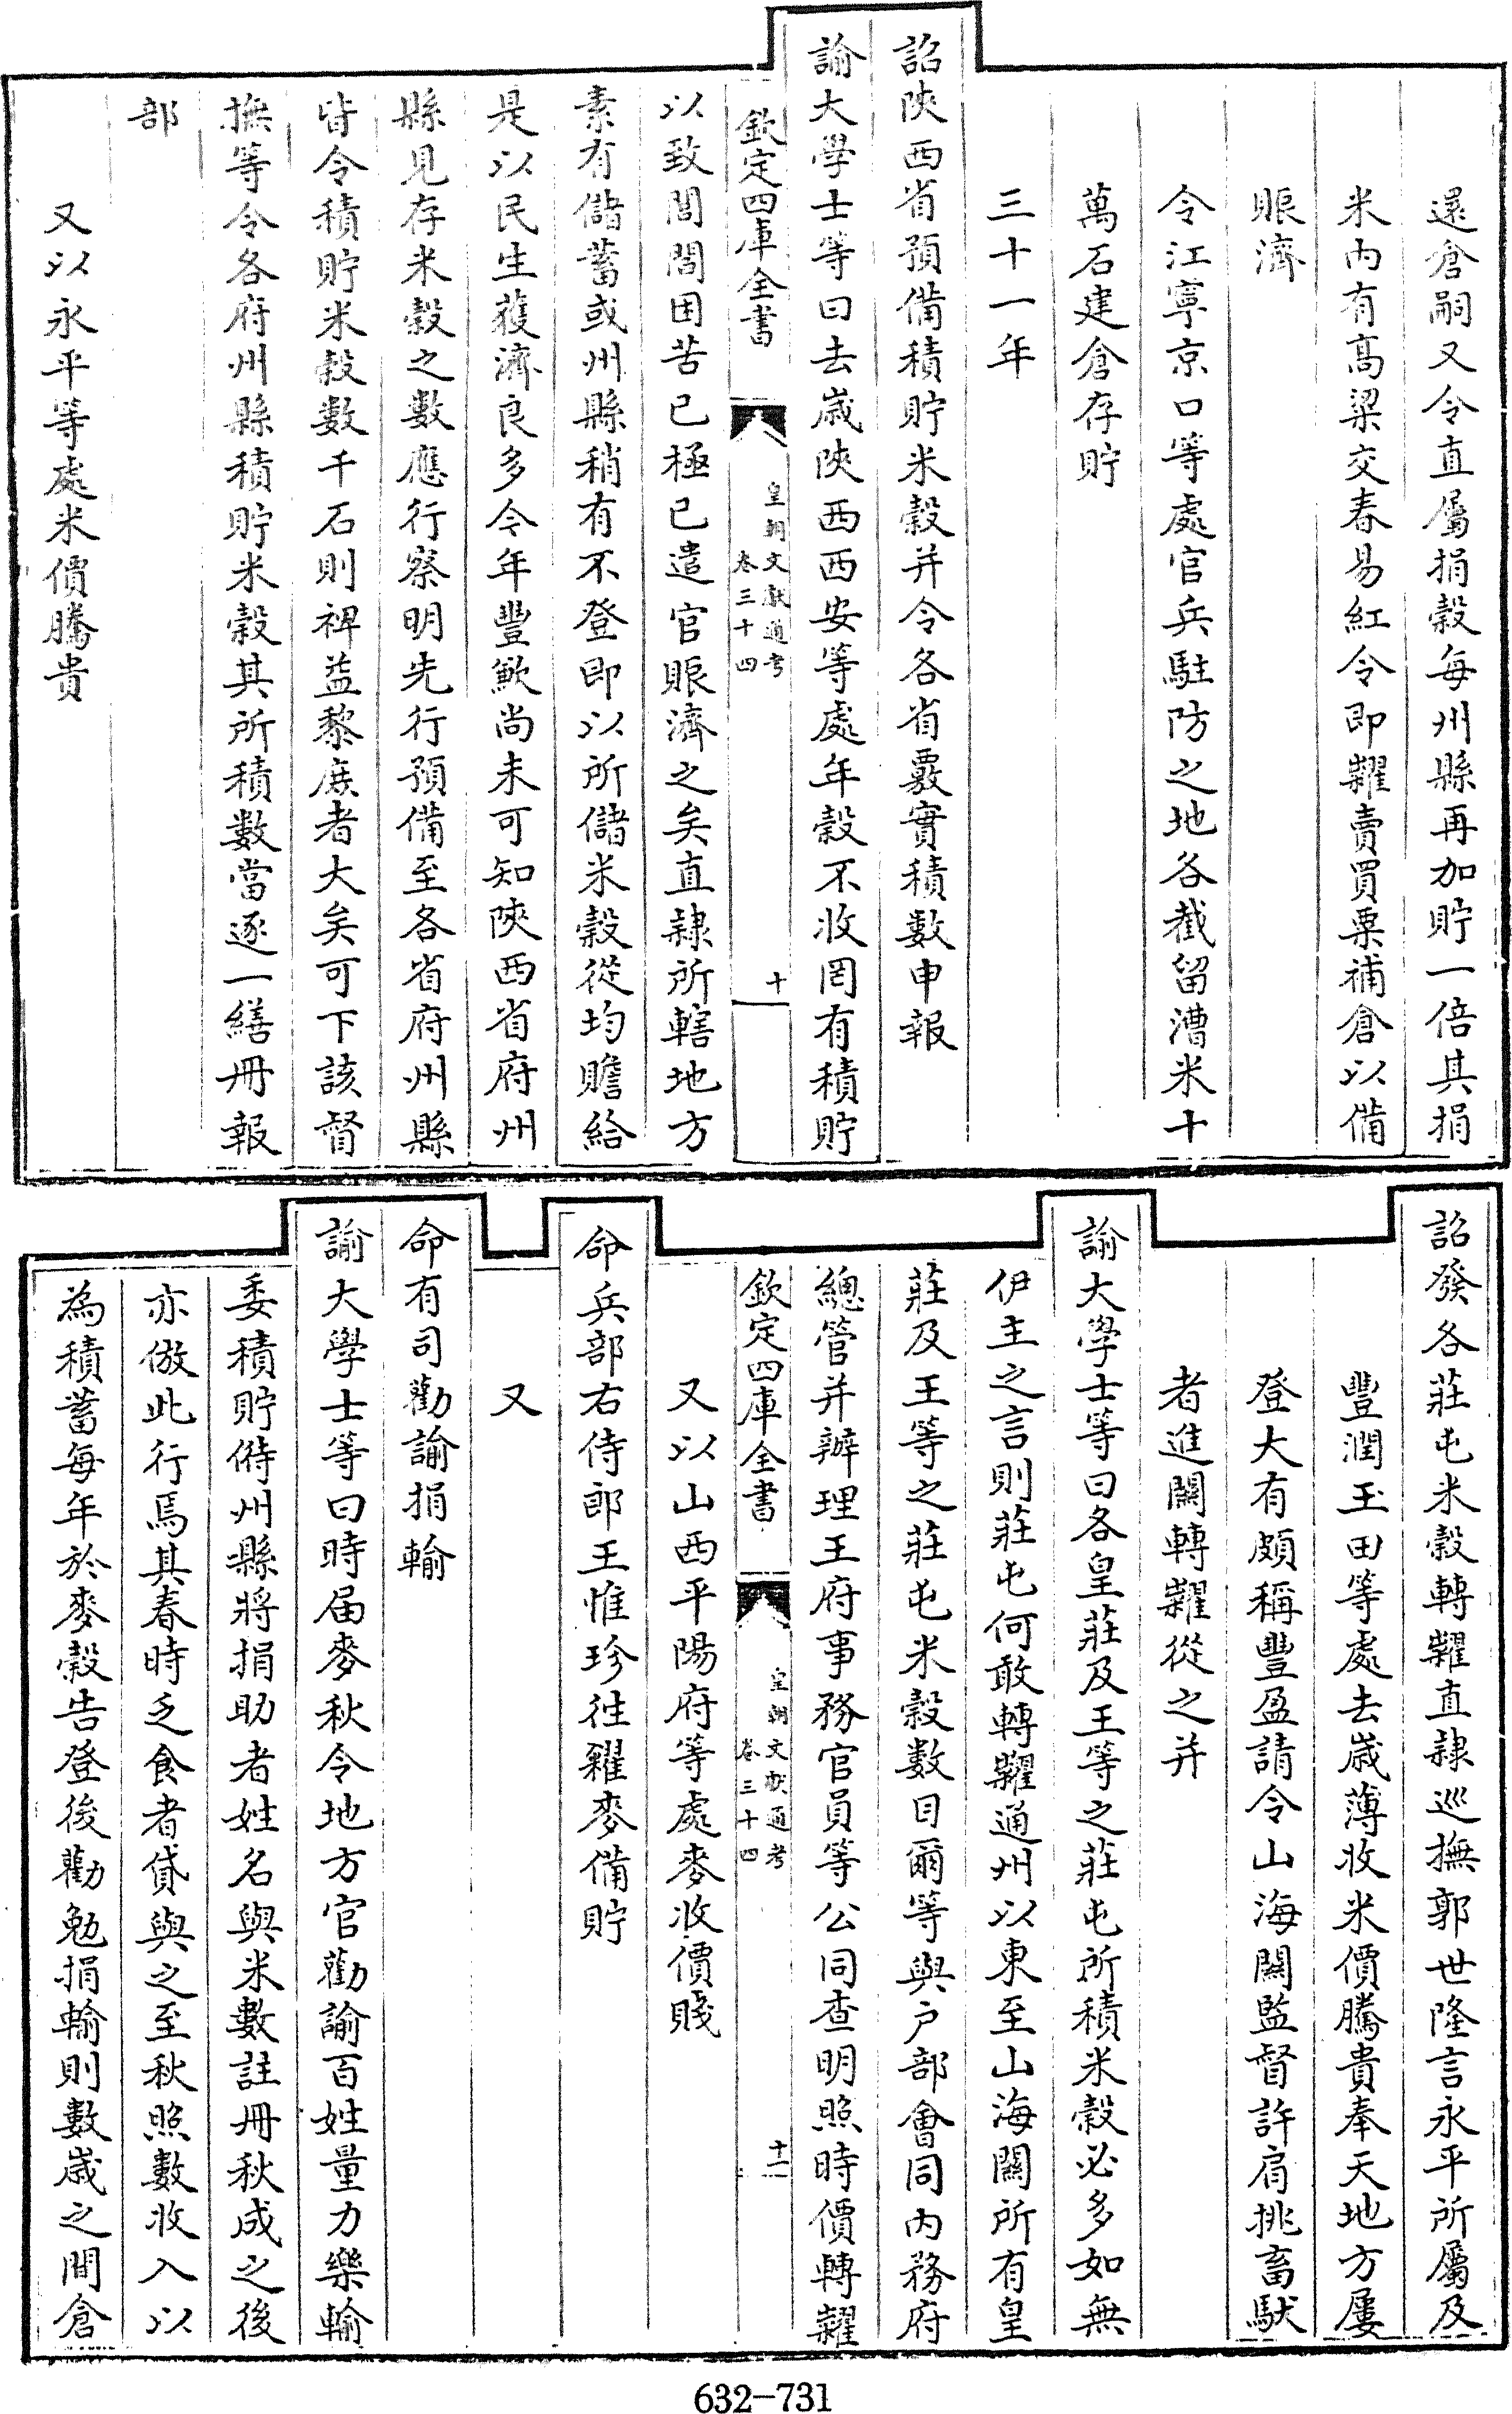 還倉嗣又令直屬捐穀每州縣再加貯一倍其捐
米內有高粱交春易紅令即糶賣買粟補倉以備
賑濟
令江寧京口等處官兵駐防之地各截留漕米十
萬石建倉存貯
三十一年
詔陝西省預備積貯米穀并令各省覈實積數申報
諭大學士等曰去歲陝西西安等處年穀不收罔有積貯
欽定四庫全書
皇朝文獻通考
卷三十四
十
以致閭閻困苦已極已遣官賑濟之矣直隸所轄地方
素有儲蓄或州縣稍有不登即以所儲米穀從均贍給
是以民生獲濟良多今年豐歉尚未可知陝西省府州
縣見存米穀之數應行察明先行預備至各省府州縣
皆令積貯米穀數千石則裨益黎庶者大矣可下該督
撫等令各府州縣積貯米穀其所積數當逐一繕冊報
部
又以永平等處米價騰貴
詔發各莊屯米穀轉糶直隸巡撫郭世隆言永平所屬及
豐潤玉田等處去歲薄收米價騰貴奉天地方屢
登大有頗稱豐盈請令山海關監督許肩挑畜馱
者進關轉糶從之并
諭大學士等曰各皇莊及王等之莊屯所積米穀必多如無
伊主之言則莊屯何敢轉糶通州以東至山海關所有皇
莊及王等之莊屯米穀數目爾等與户部會同內務府
總管并辦理王府事務官員等公同查明照時價轉糶
欽定四庫全書
皇朝文獻通考
卷三十四
十一
又以山西平陽府等處麥收價賤
命兵部右侍郎王惟珍往糴麥備貯
又
命有司勸諭捐輸
諭大學士等曰時届麥秋令地方官勸諭百姓量力樂輸
委積貯偫州縣將捐助者姓名與米數註冊秋成之後
亦倣此行焉其春時乏食者貸與之至秋照數收入以
為積蓄每年於麥穀告登後勸勉捐輸則數歲之間倉
632-731